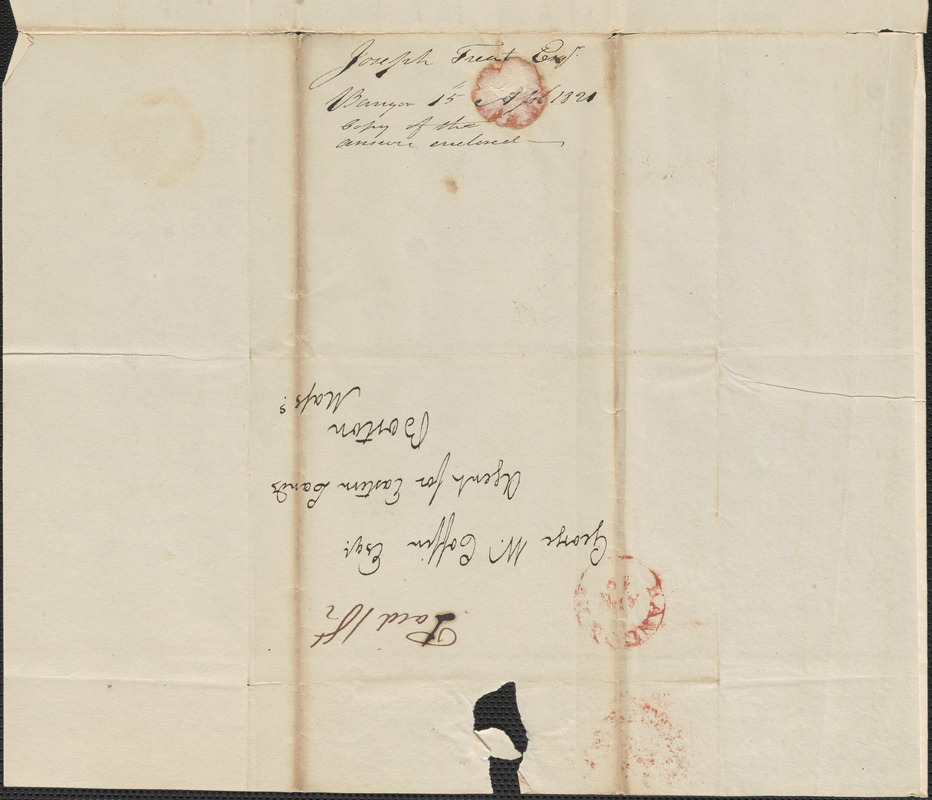 Joseph Treat Esqr.
Bangor 15 Apl 1821
Copy of the
answer enclosed
Paid 18½
George W. Coffin Esqr.
Agent for Eastern Lands
Boston
Mass:
BANG